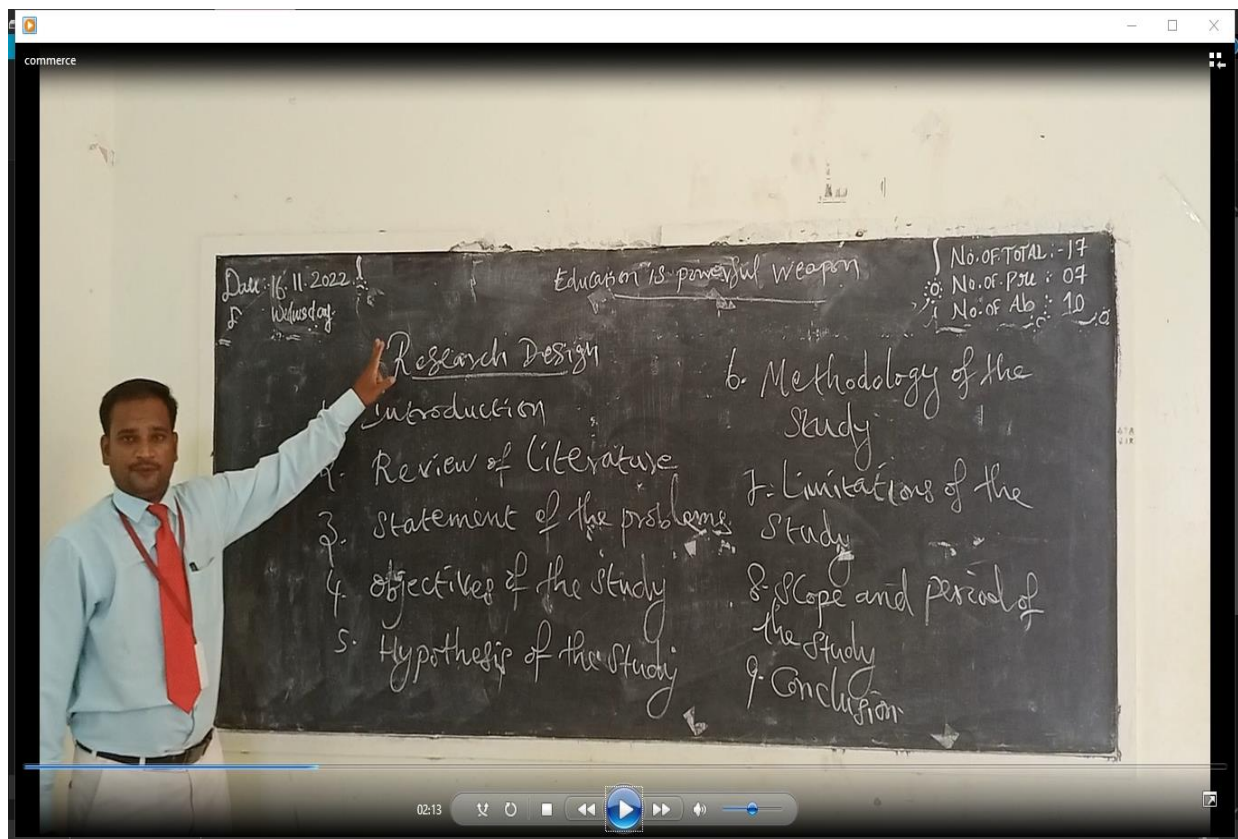 commerce
Date:- 16.11.2022
Wednesday
Education is powerful weapon
No.OF.TOTAL:-17
No.of Pre : 07
No.of Ab : 10
Research Design
1. Introduction
2. Review of Literature
3. Statement of the problems
4. Objectives of the Study
5. Hypothesis of the Study
6. Methodology of the
Study
7. Limitations of the
Study
8. Scope and period of
the Study
9. Conclusion
02:13